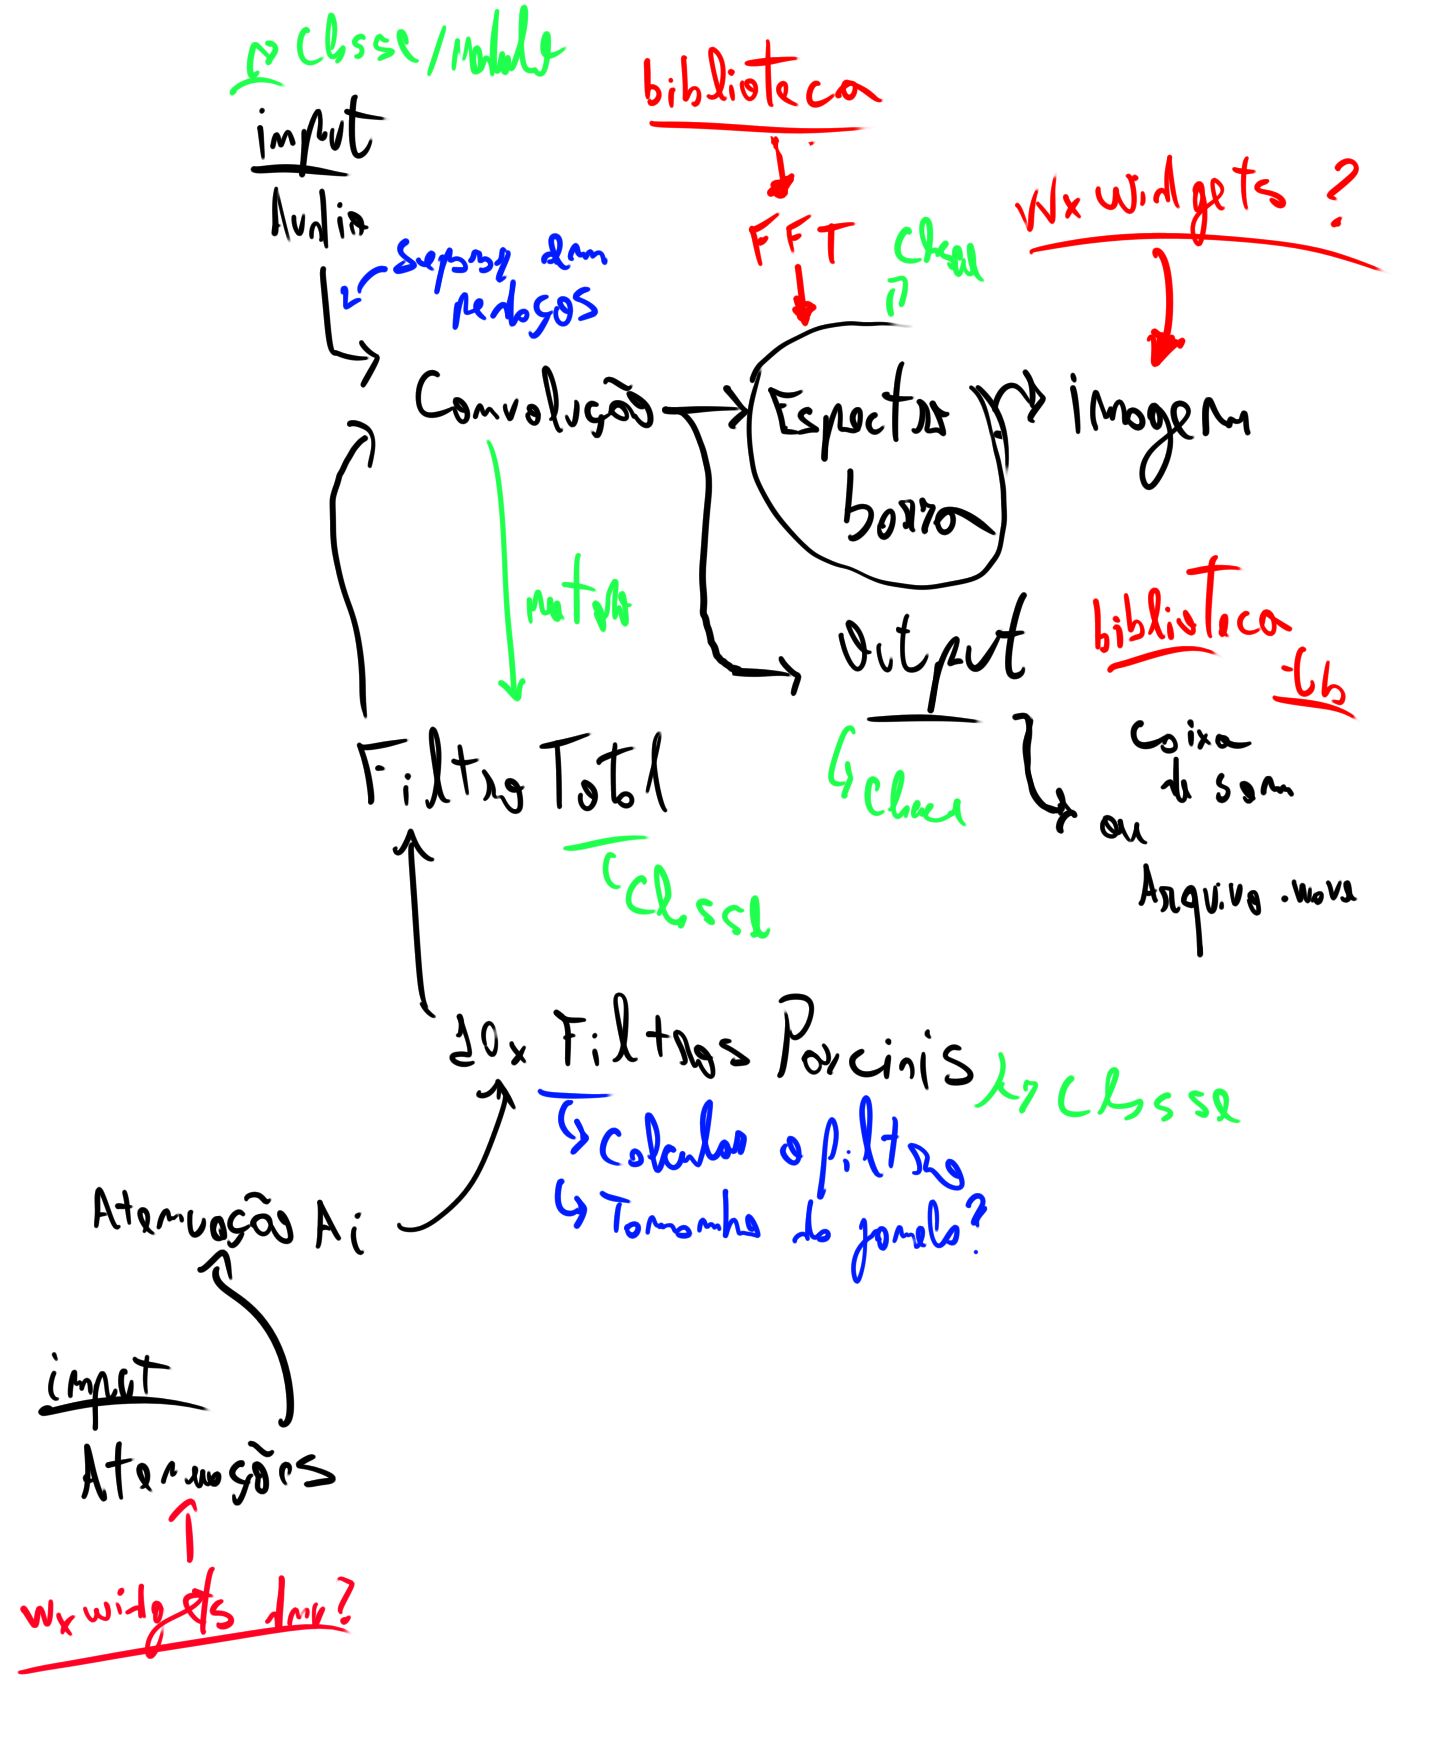 Classe/
input
Audio
separar em
pedaços
biblioteca
FFT
Classe
wxwidgets ?
Convolução
Espectro
borra
imagem
Output
biblioteca
tb
Classe
caixa
de som
ou
Arquivo .wave
Filtro Total
Classe
10x Filtros Parciais
Classe
Calcular o filtro
Tamanho da janela?
Atenuação Ai
input
Atenuações
wxwidgets